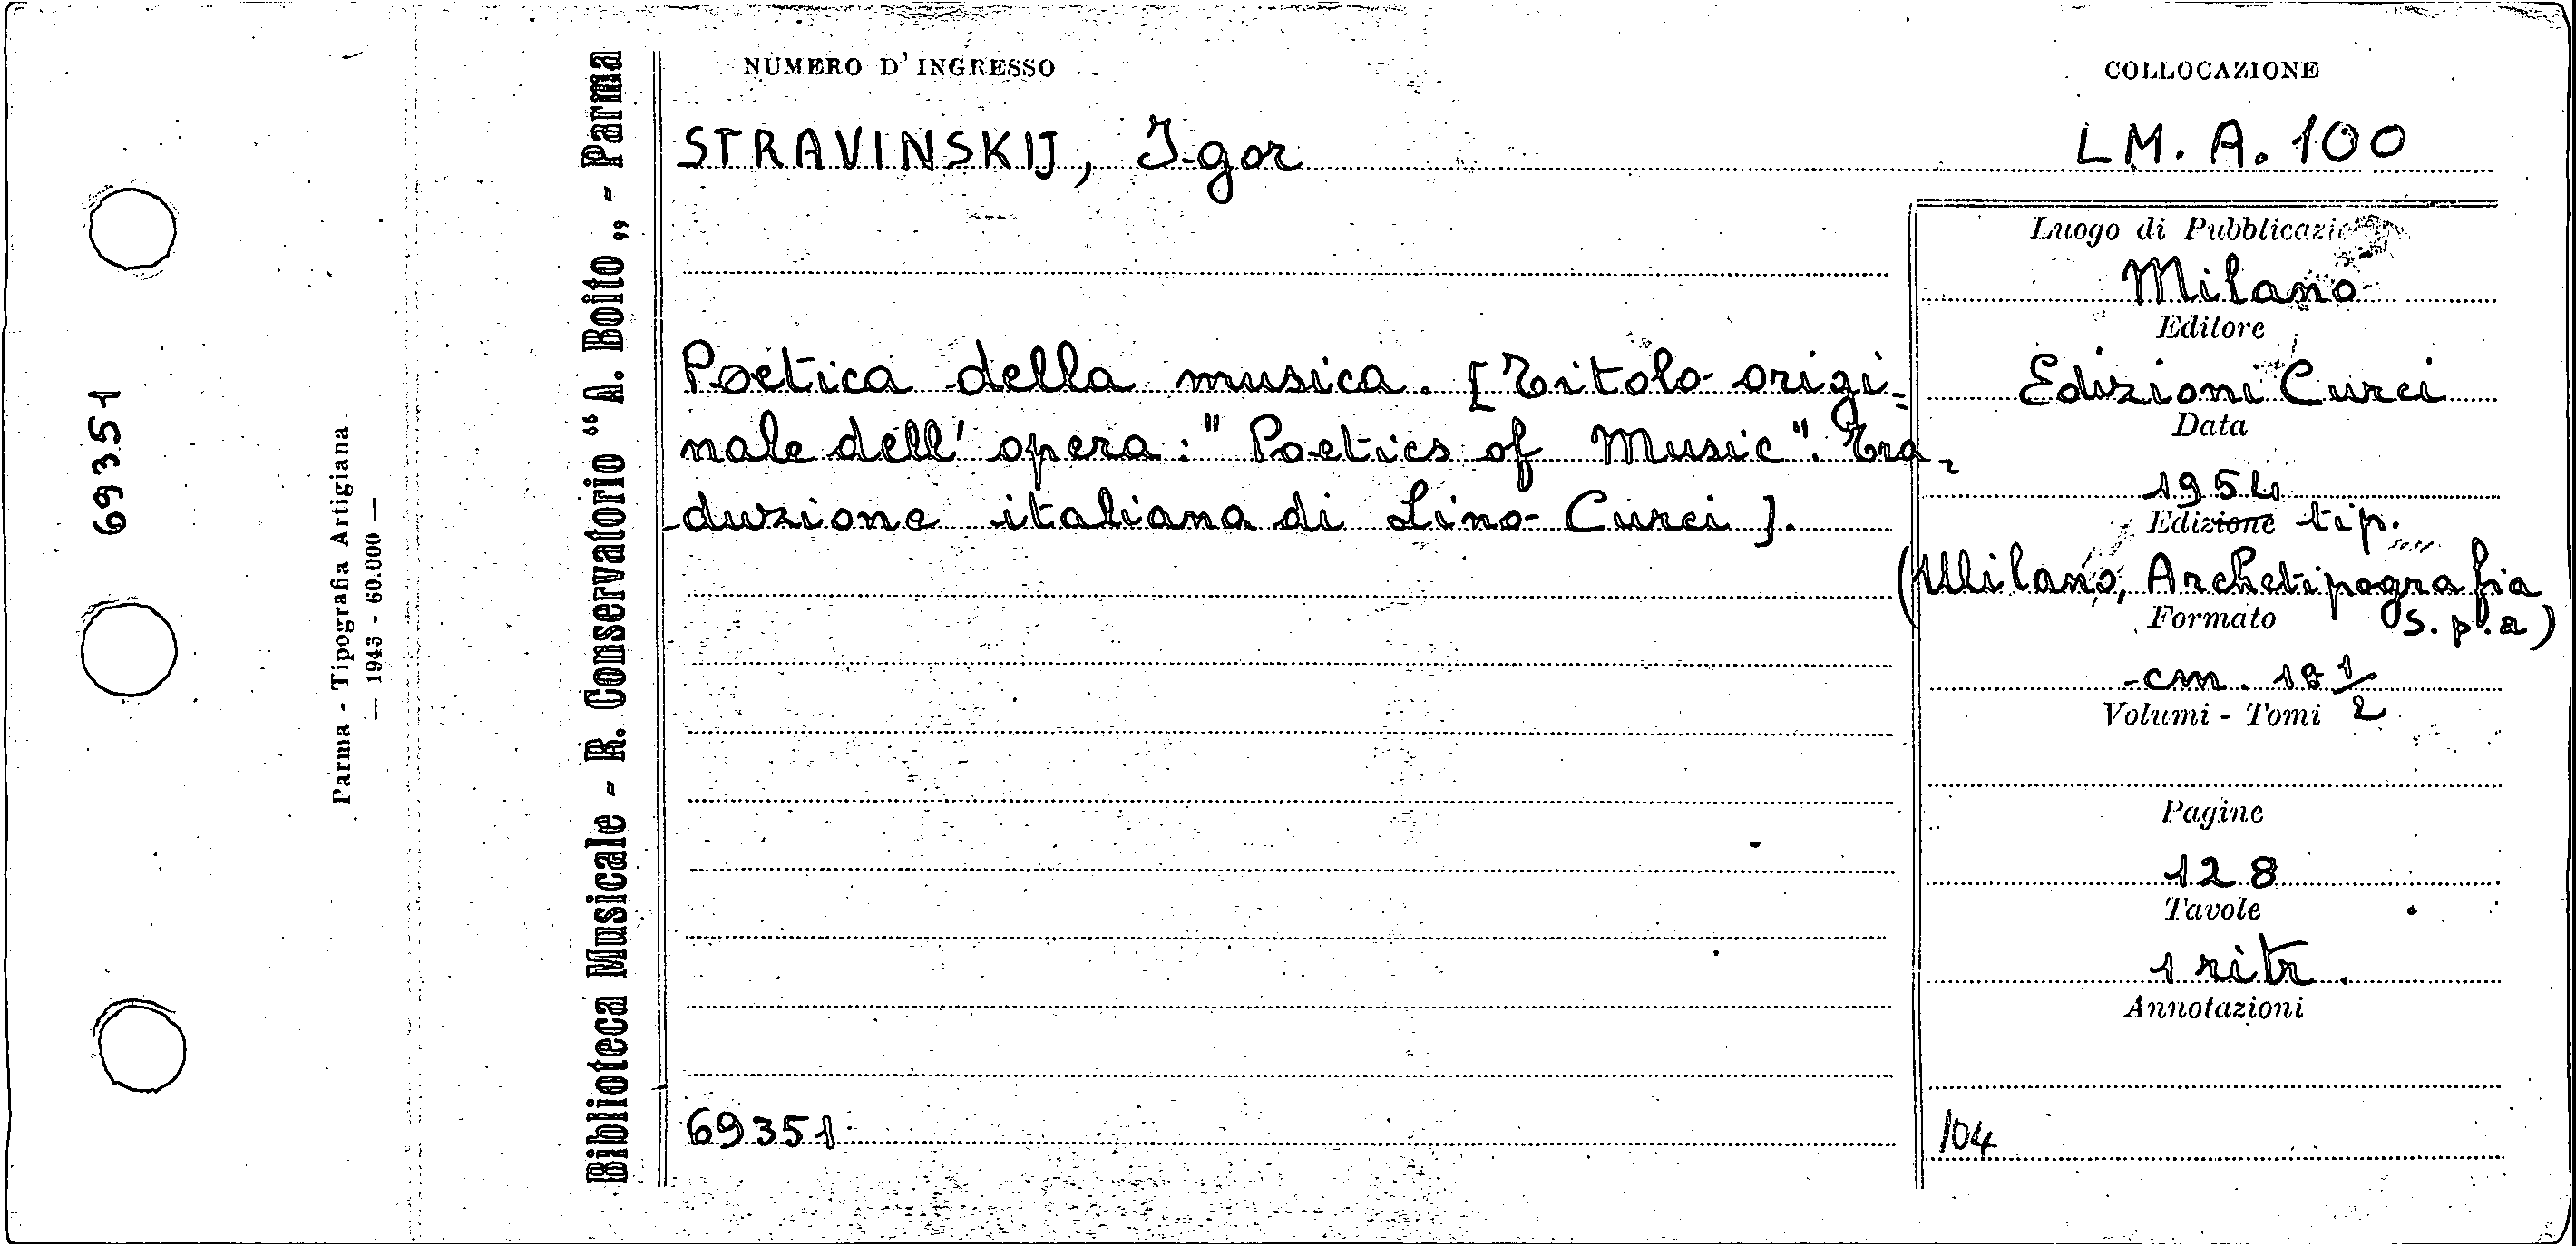 69351
Parma - Tipografia Artigiana
— 1943 - 60.000 —
Biblioteca Musicale - R. Conservatorio “A. Boito„ - Parma
NUMERO D'INGRESSO
COLLOCAZIONE
STRAVINSKIJ, Igor
LM. A. 100
Poetica della musica. [Titolo origi=
nale dell'opera: "Poetics of Music". Tra=
duzione italiana di Lino Curci].
69351
Luogo di Pubblicazio
Milano
Editore
Edizioni Curci
Data
1954
Edizione tip.
(Milano, Archetipografia
S.p.a)
Formato
cm. 18 1/2
Volumi - Tomi
Pagine
128
Tavole
1 ritr.
Annotazioni
104